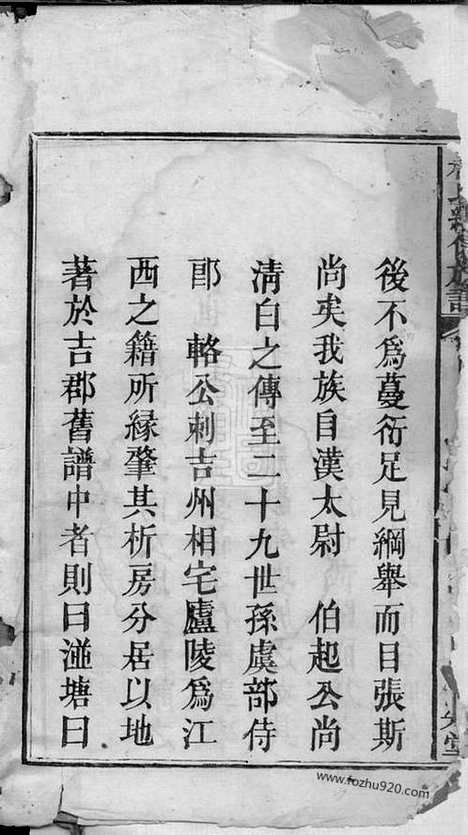 後不爲蔓衍足見綱舉而目張斯
尚矣我族自漢太尉 伯起公尚
清白之傳至二十九世孫虞部侍
郎 輅公刺吉州相宅廬陵爲江
西之籍所緣肇其析房分居以地
著於古郡舊譜中者則曰湴塘曰
www.fozhu920.com